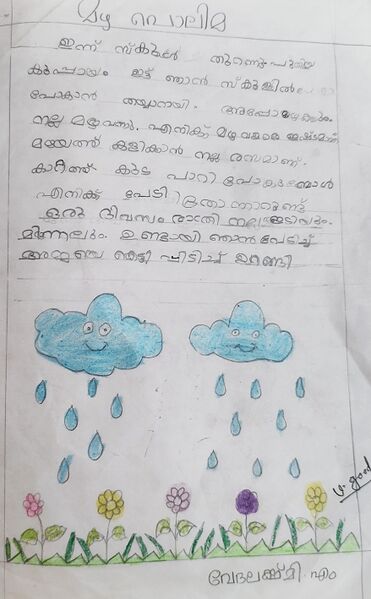 മഴ പൊലിമ
ഇന്ന് സ്കൂൾ തുറന്നു പുതിയ
കുപ്പായം ഇട്ട് ഞാൻ സ്കൂളിൽ
പോകാൻ തയ്യാറായി. അപ്പോ
നല്ല മഴ വന്നു. എനിക്ക് മഴ വളരെ ഇഷ്ടമാണ്
മഴയത്ത് കളിക്കാൻ നല്ല രസമാണ്.
കാറ്റത്ത് കുട പാറി പോകുമ്പോൾ
എനിക്ക് പേടി തോന്നാറുണ്ട്
ഒരു ദിവസം രാത്രി നല്ല ഇടിയും.
മിന്നലും. ഉണ്ടായി ഞാൻ പേടിച്ച്
അമ്മയെ കെട്ടി പിടിച്ച് ഉറങ്ങി
വേദലക്ഷ്മി എം